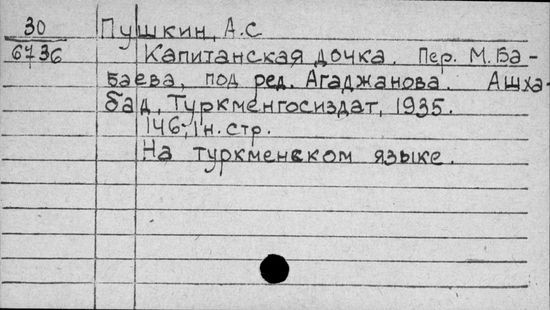 30 Пушкин, А.С
6736 Капитанская дочка. Пер. М. Ба-
баева, под ред. Агаджанова. Ашха-
бад, Туркменгосиздат, 1935.
146,1 н. стр.
На туркменском языке.